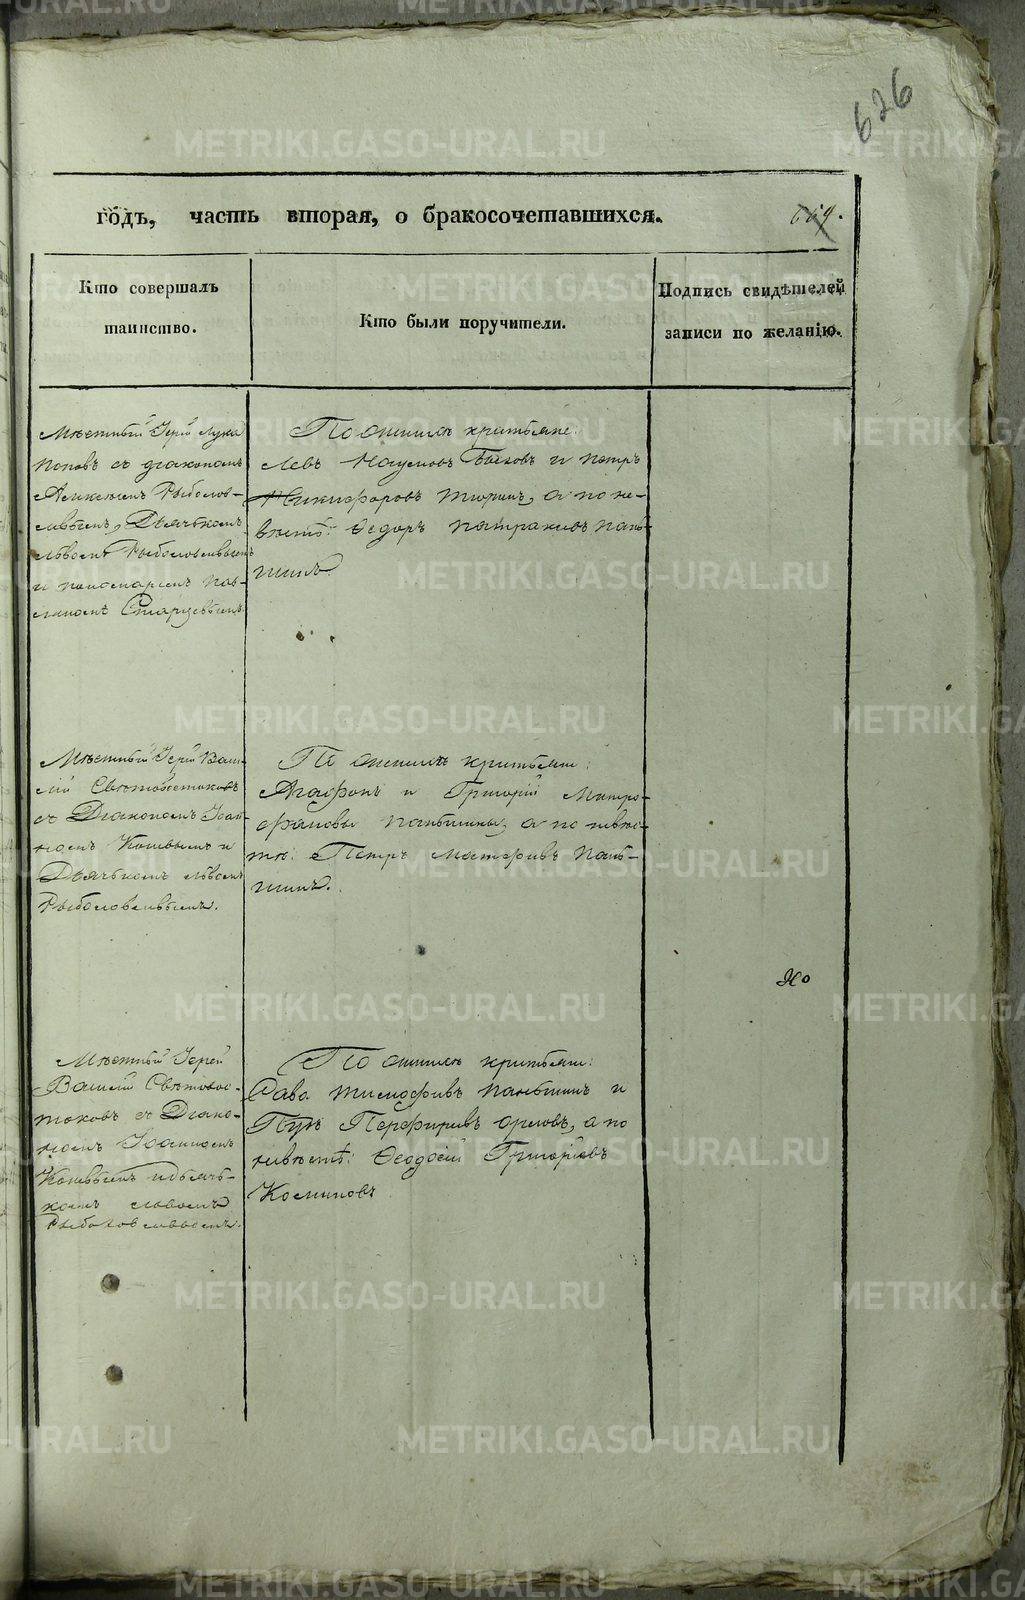 626
годъ, часть вторая, о бракосочетавшихся.
Кто совершалъ
таинство.
Кто были поручители.
Подпись свидѣтелей
записи по желанію.
Мѣстный Іерей Лука
Поповъ съ діакономъ
Алексіемъ Рыболов-
левымъ, Дьячкомъ
Львомъ Рыболовлевымъ
и пономаремъ
Старцевымъ
По женихѣ крестьяне:
Левъ Наумовъ Быковъ и Петръ
Никифоровъ Тюринъ, а по не-
вѣстѣ: Ѳедоръ Патракеевъ Пань-
шинъ.
Мѣстный Іерей Васи-
лій Свѣтовостоковъ
съ Діакономъ Іоан-
номъ и
Дьячкомъ Львомъ
Рыболовлевымъ.
По женихѣ крестьяне:
Агафонъ и Григорій Митро-
фановы Паньшины, а по невѣс-
тѣ: Петръ Матфѣевъ Пань-
шинъ.
Мѣстный Іерей
Василій Свѣтовос-
токовъ съ Діако-
номъ Іоанномъ
и дьяч-
комъ Львомъ
Рыболовлевымъ.
По женихѣ крестьяне:
Сава Тимофѣевъ Паньшинъ и
Перфирьевъ Орловъ, а по
невѣстѣ: Ѳеодосій Григорьевъ
Косминовъ
METRIKI.GASO-URAL.RU